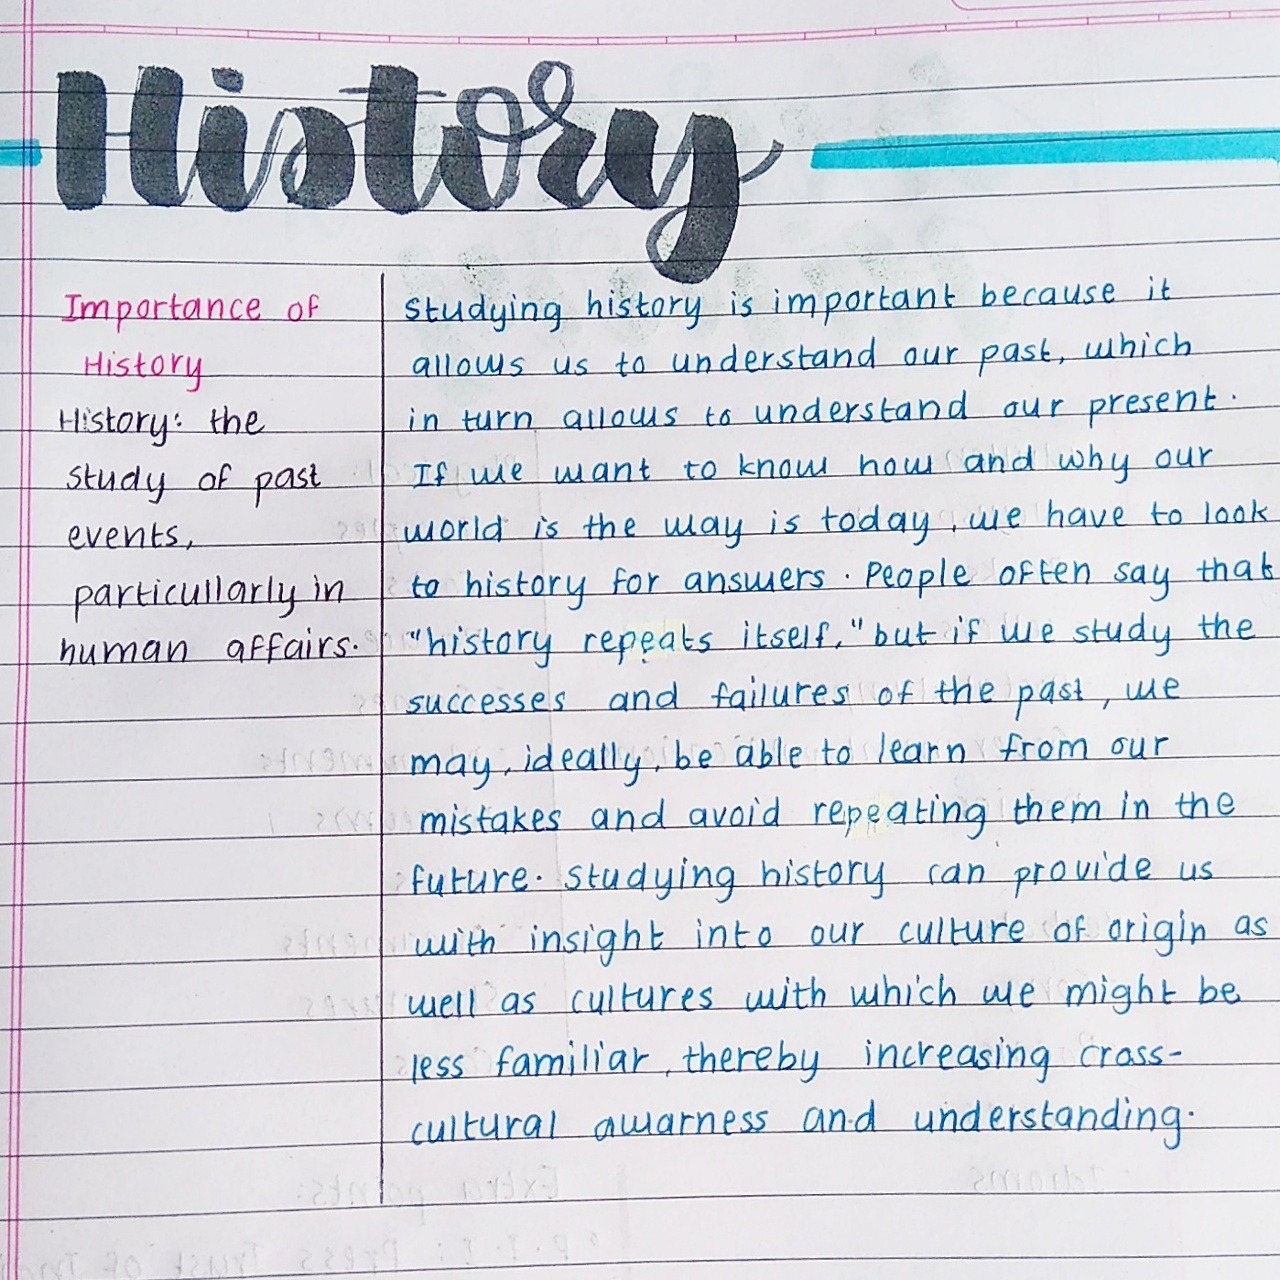 History
Importance of
History
History: the
study of past
events,
particullarly in
human affairs.
Studying history is important because it
allows us to understand our past, which
in turn allows to understand our present.
If we want to know how and why our
world is the way is today, we have to look
to history for answers. People often say that
"history repeats itself," but if we study the
successes and failures of the past, we
may, ideally, be able to learn from our
mistakes and avoid repeating them in the
future. Studying history can provide us
with insight into our culture of origin as
well as cultures with which we might be
less familiar, thereby increasing cross-
cultural awarness and understanding.